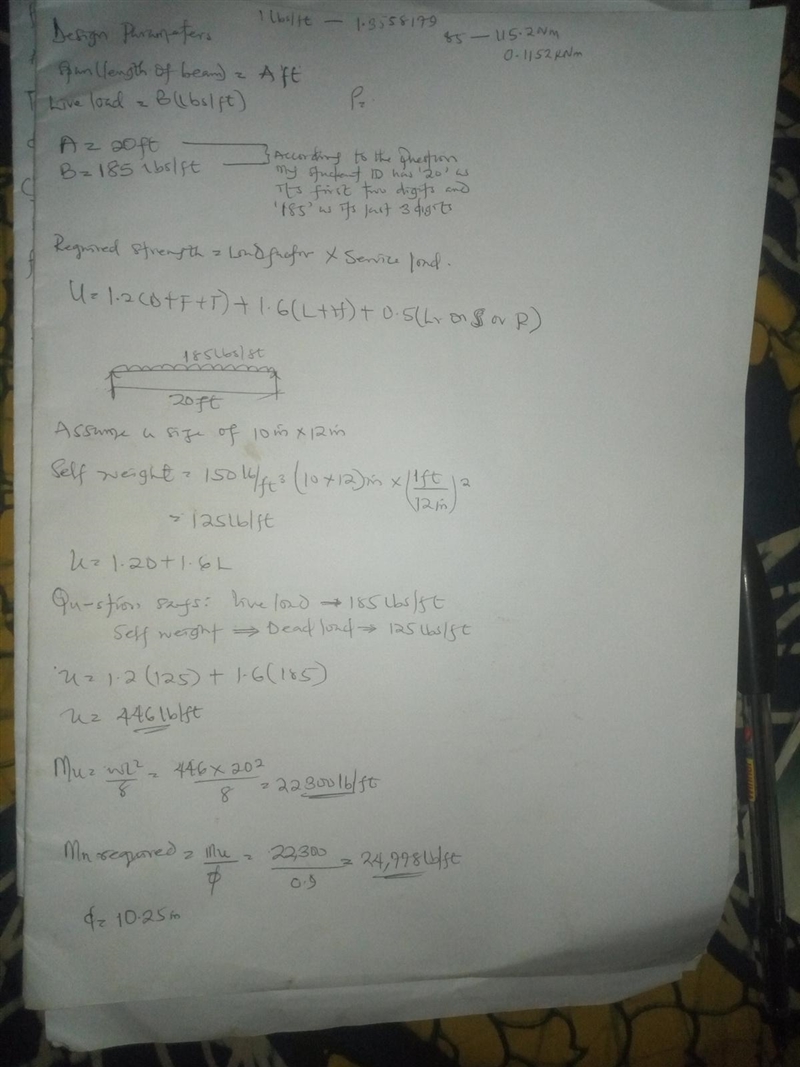 1 lbs/ft — 1.3558179
Design Parameters
85 — 115.2Nm
0.1152KNm
Span (length of beam) = A ft
Live load = B (lbs/ft)
P=
A = 20ft
B = 185 lbs/ft
According to the Question
My student ID has '20' as
its first two digits and
'185' as its last 3 digits
Required strength = Load factor × Service load.
U = 1.2(D+F+T) + 1.6(L+H) + 0.5(Lr or S or R)
185 lbs/ft
20ft
Assume a size of 10in × 12in
Self weight = 150 lb/ft³ (10 × 12)in × (1ft/12in)²
= 125lb/ft
U = 1.2D + 1.6L
Question says: Live load → 185 lbs/ft
Self weight ⇒ Dead load → 125 lbs/ft
U = 1.2 (125) + 1.6(185)
U = 446 lb/ft
Mu = wl²/8 = 446 × 20²/8 = 22300 lb/ft
Mn required = Mu/ϕ = 22,300/0.9 = 24,998 lb/ft
d = 10.25in